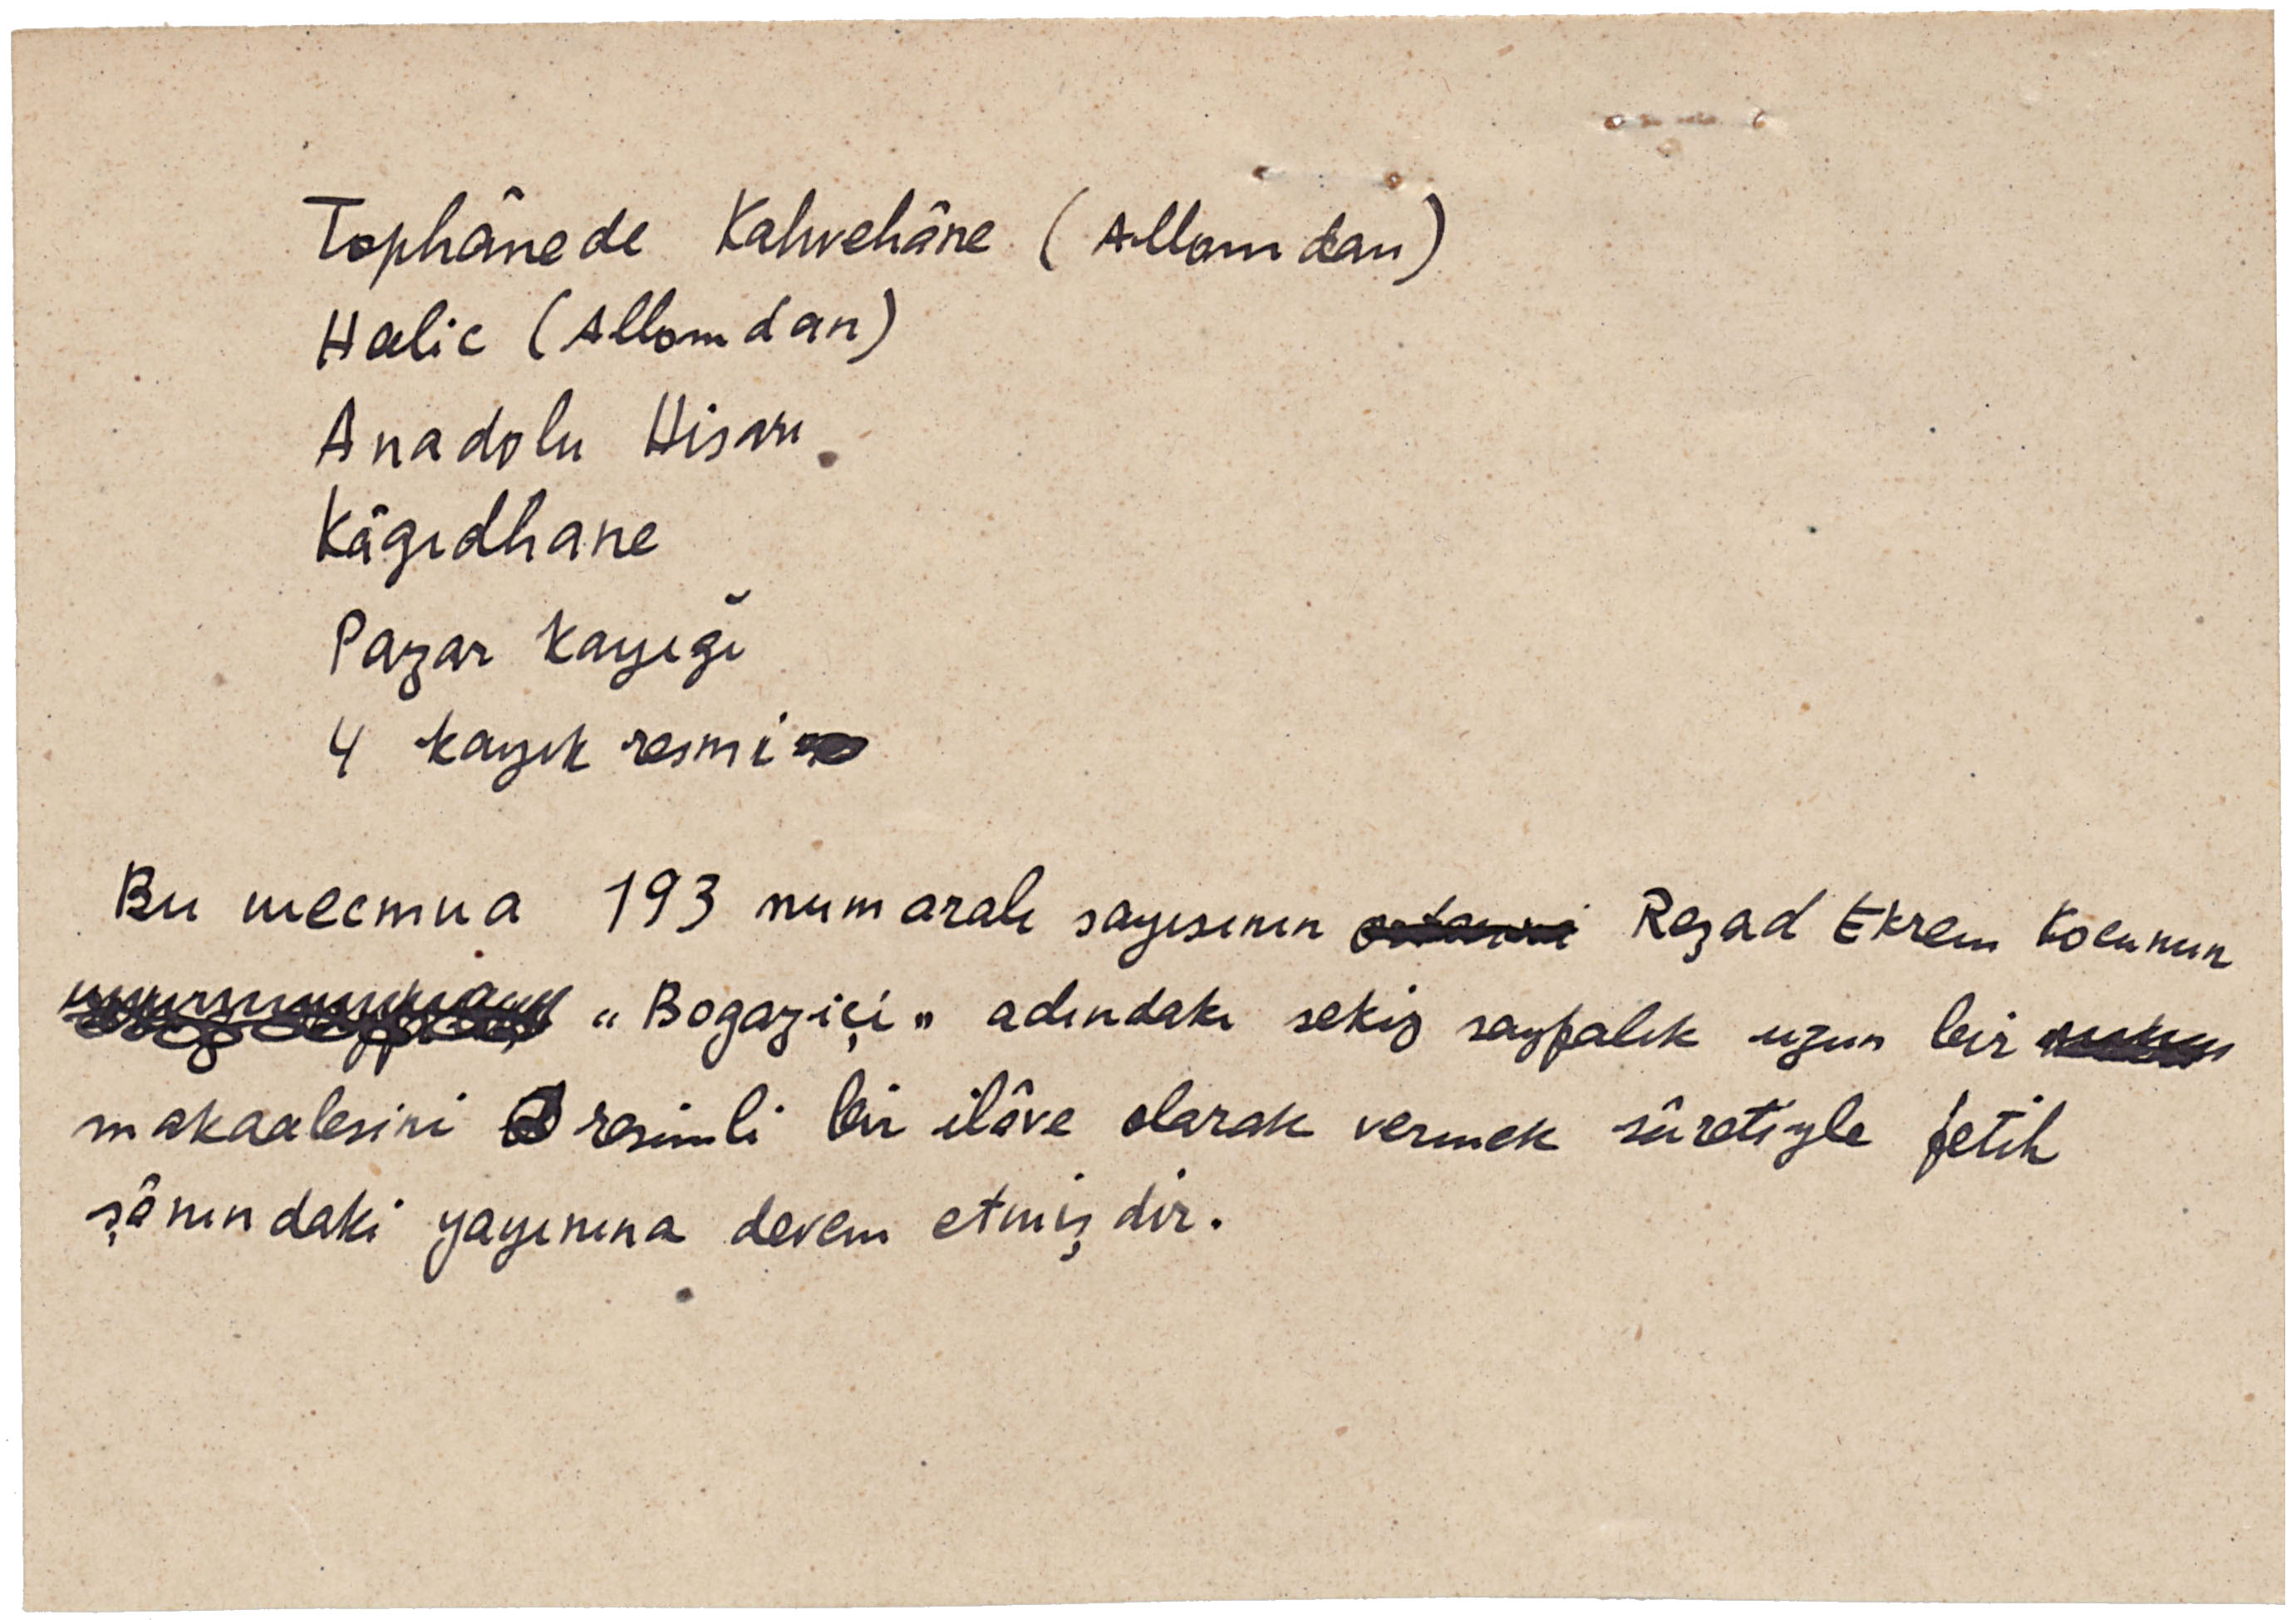 Tophânede Kahvehâne (Allomdan)
Halic (Allomdan)
Anadolu Hisarı
Kâgıdhane
Pazar kayığı
4 kayık resmi
Bu mecmua 193 numaralı sayısının Reşad Ekrem Koçunun
"Bogaziçi" adındakı sekiz sayfalık uzun bir
makaalesini resimli bir ilâve olarak vermek sûretiyle fetih
şânındaki yayınına devam etmişdir.